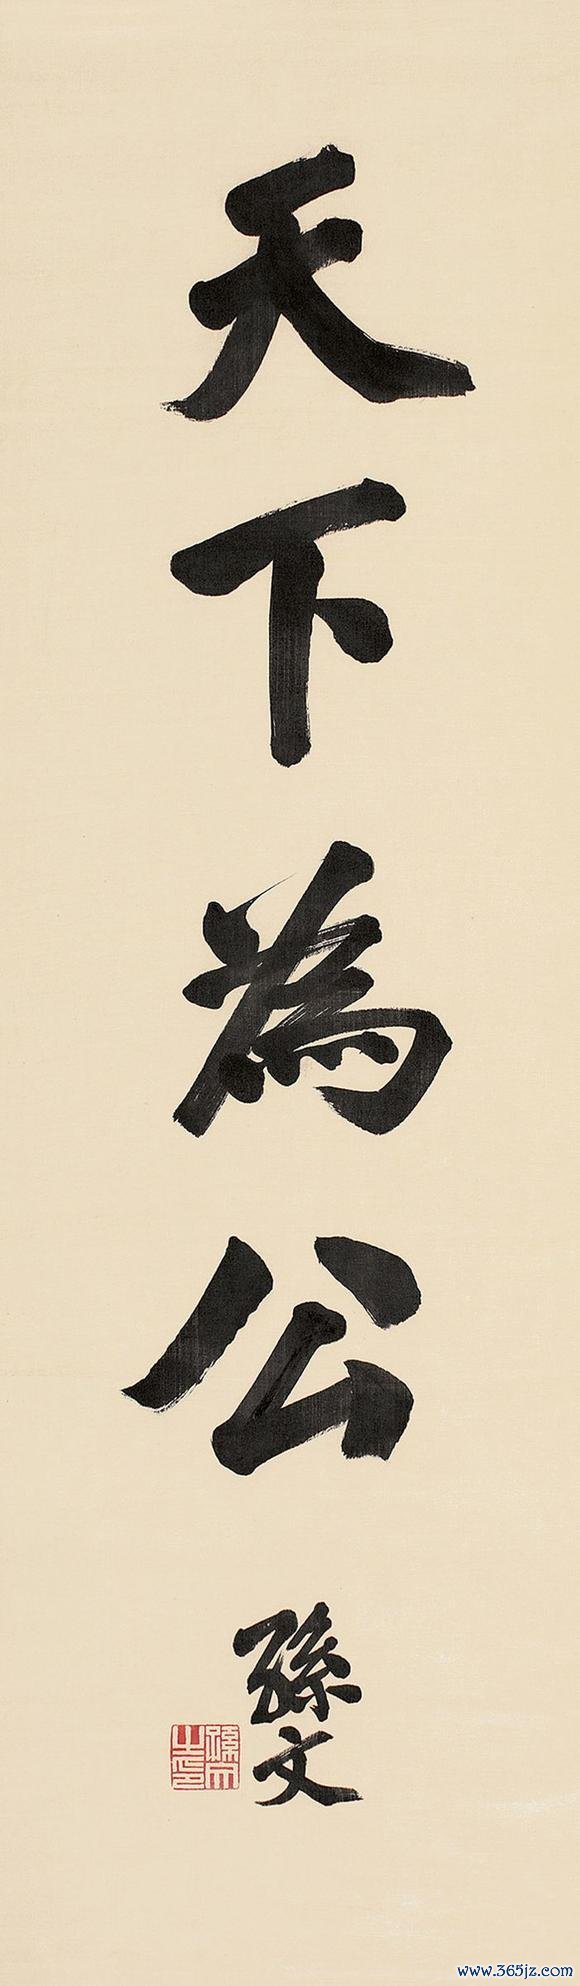 天下為公
孫文
孫文之印
www.365jz.com